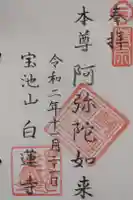 奉拝
本尊阿弥陀如来
令和二年十一月二十一日
宝池山白蓮寺